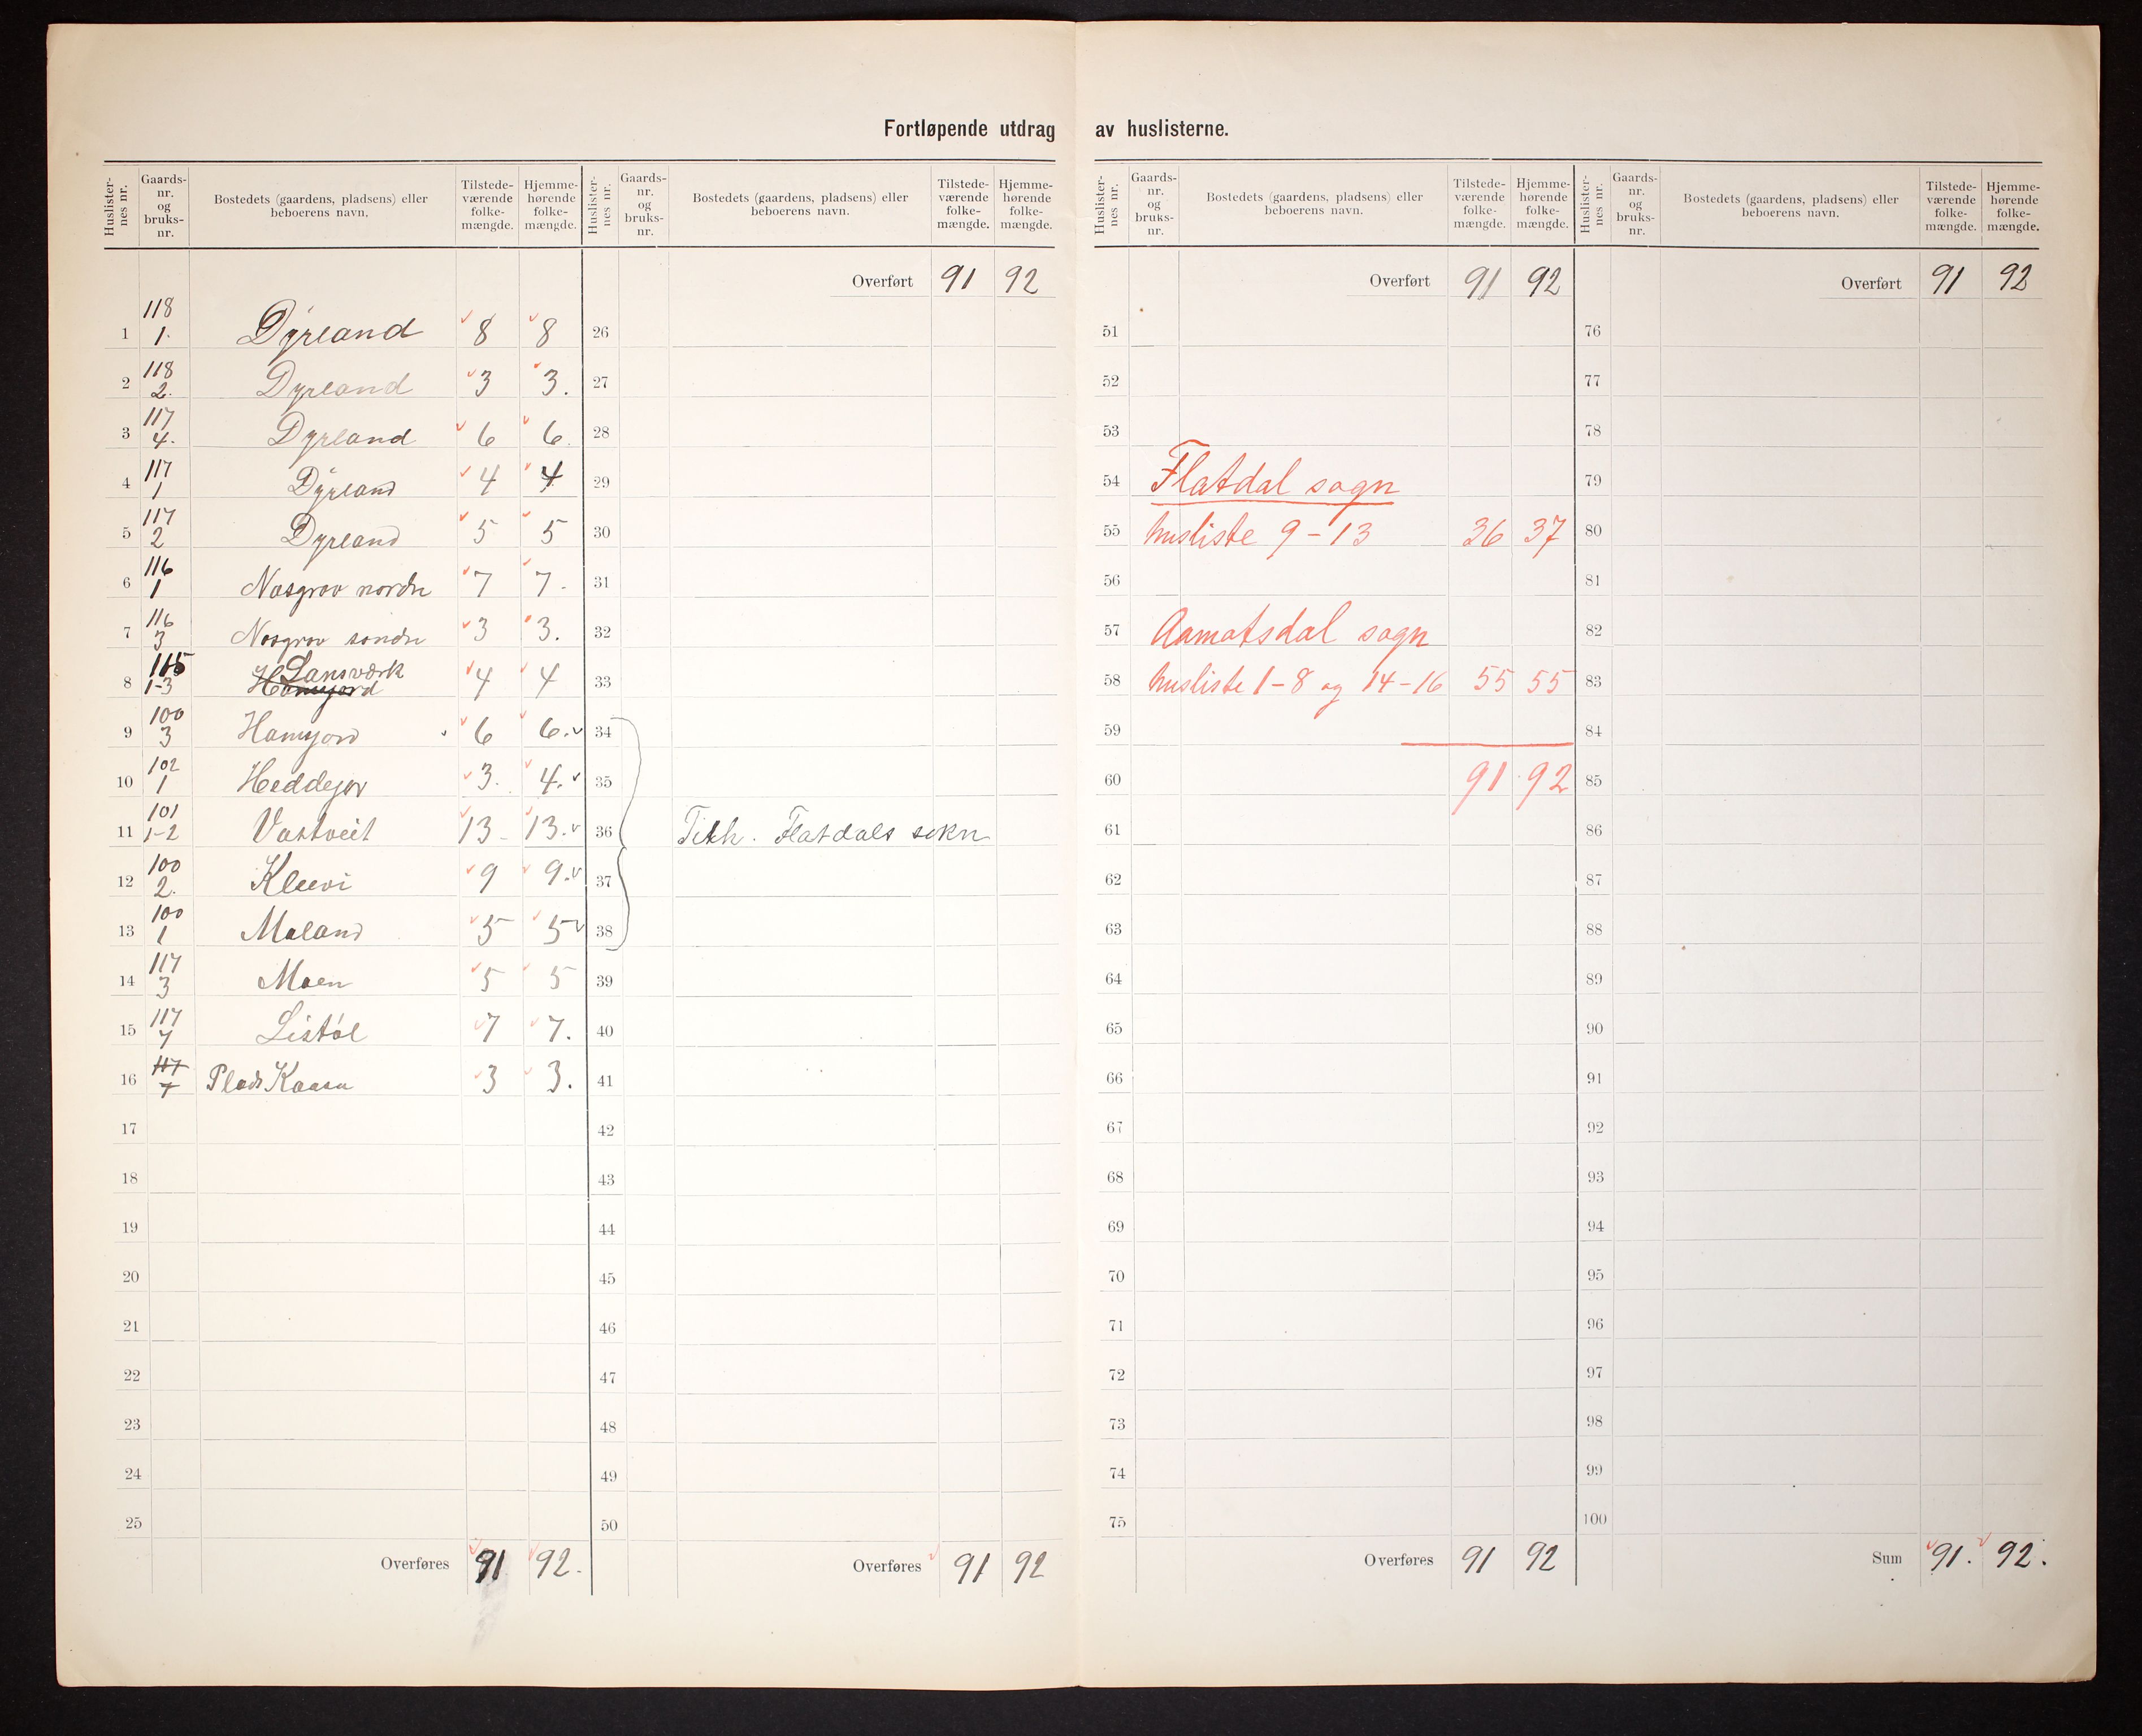 Fortløpende utdrag av huslisterne.
Huslister-nes nr. Gaards-nr. og bruks-nr. Bostedets (gaardens, pladsens) eller beboerens navn. Tilstede-værende folke-mængde. Hjemme-hørende folke-mængde.
1 118 1. Dyrland 8 8
2 118 2. Dyrland 3 3.
3 117 4. Dyrland 6 6.
4 117 1 Dyrland 4 4
5 117 2 Dyrland 5 5
6 116 1 Nasgrov nordre 7 7.
7 116 3 Nosgrov søndre 3 3.
8 115 1-3 Hamyord Lansværk 4 4
9 100 3 Hamyord 6 6.
10 102 1 Heddejor 3. 4.
11 101 1-2 Vastveit 13 13.
12 100 2. Kleevi 9 9.
13 100 1 Maland 5 5
14 117 3 Moen 5 5
15 117 7 Listøl 7 7.
16 117 7 Plads Kaasa 3 3.
17
18
19
20
21
22
23
24
25
Overføres 91 92.
Huslister-nes nr. Gaards-nr. og bruks-nr. Bostedets (gaardens, pladsens) eller beboerens navn. Tilstede-værende folke-mængde. Hjemme-hørende folke-mængde.
Overført 91 92
26
27
28
29
30
31
32
33
34
35
36 Tilh. Flatdals sokn
37
38
39
40
41
42
43
44
45
46
47
48
49
50
Overføres 91 92
Huslister-nes nr. Gaards-nr. og bruks-nr. Bostedets (gaardens, pladsens) eller beboerens navn. Tilstede-værende folke-mængde. Hjemme-hørende folke-mængde.
Overført 91 92
51
52
53
54 Flatdal sogn
55 husliste 9-13 36 37
56
57 Aamotsdal sogn
58 husliste 1-8 og 14-16 55 55
59
60 91 92
61
62
63
64
65
66
67
68
69
70
71
72
73
74
75
Overføres 91 92
Huslister-nes nr. Gaards-nr. og bruks-nr. Bostedets (gaardens, pladsens) eller beboerens navn. Tilstede-værende folke-mængde. Hjemme-hørende folke-mængde.
Overført 91 92
76
77
78
79
80
81
82
83
84
85
86
87
88
89
90
91
92
93
94
95
96
97
98
99
100
Sum 91. 92.